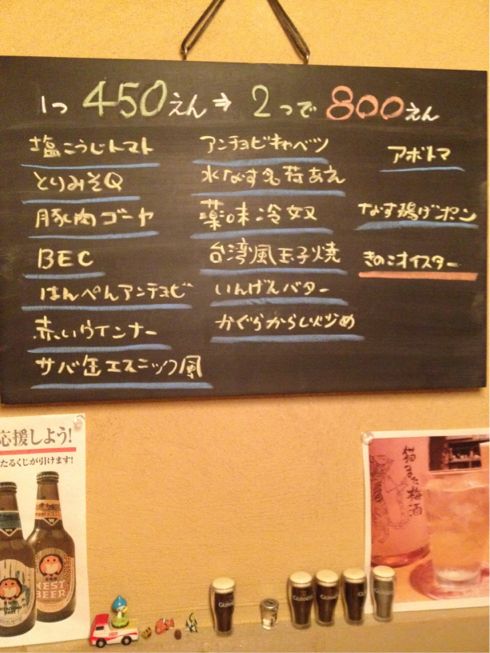 1つ 450えん⇒2つで 800えん
塩こうじトマト
とりみそQ
豚肉ゴーヤ
BEC
はんぺんアンチョビ
赤いウインナー
サバ缶エスニック風
アンチョビキャベツ
水なす茗荷あえ
薬味冷奴
台湾風玉子焼
いんげんバター
かぐらからし炒め
アボトマ
なす揚げポン
きのこオイスター
応援しよう!
たるくじが引けます!
NEST
BEER
梅酒
GUINNESS